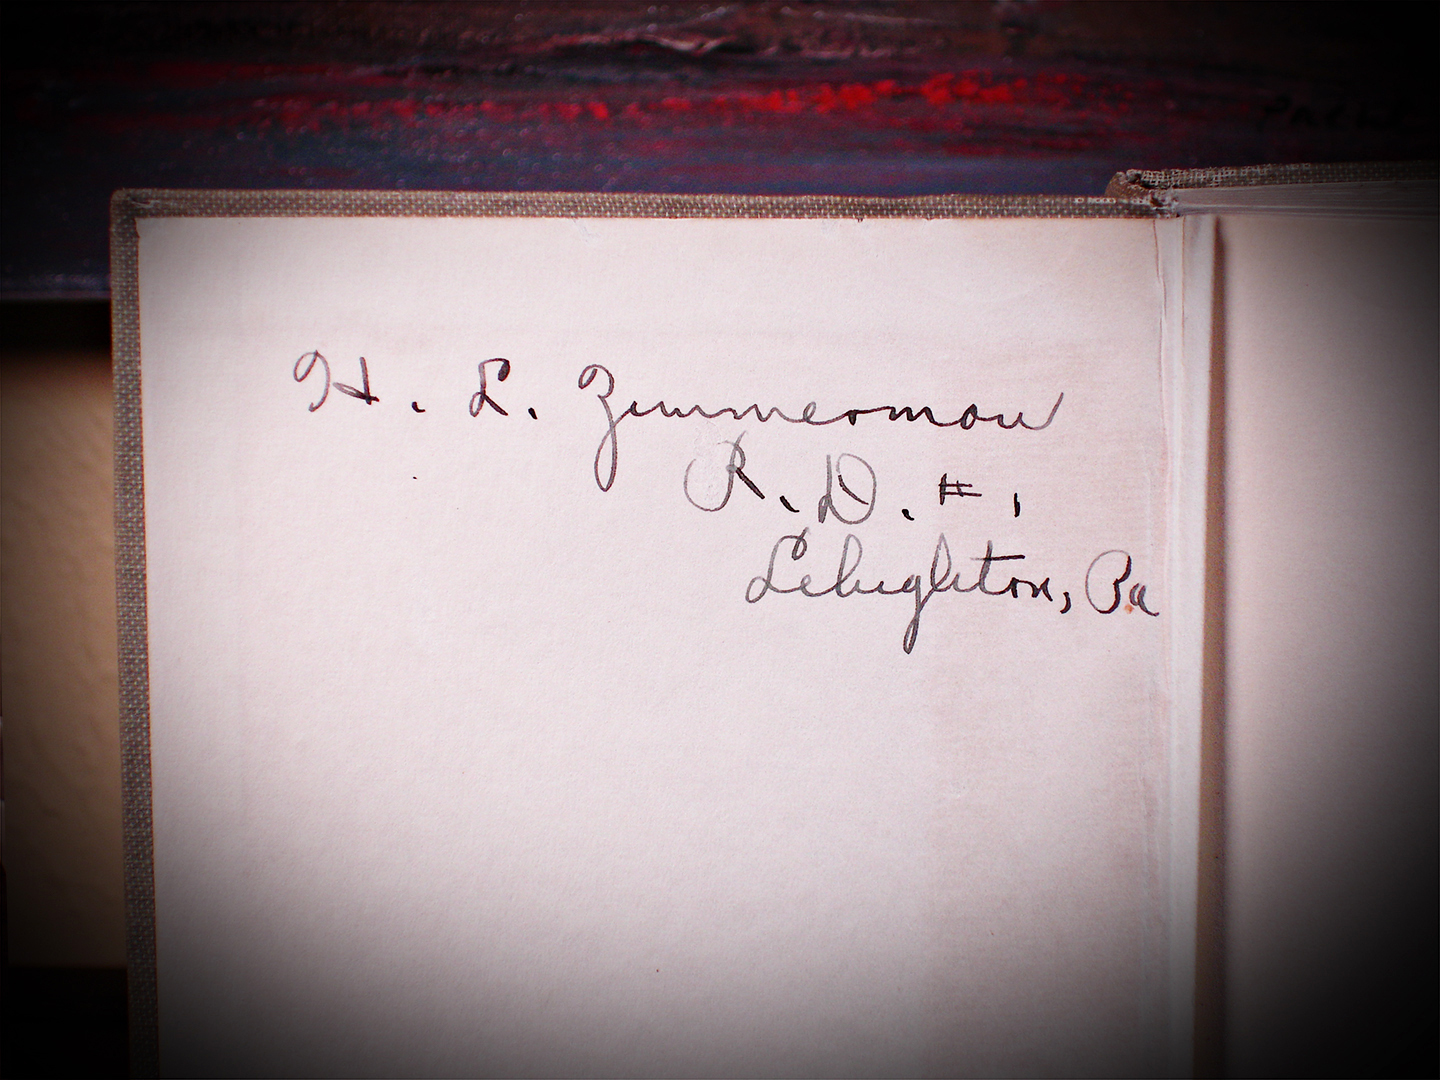 H. L. Zimmerman
R. D. # 1
Lehighton, Pa